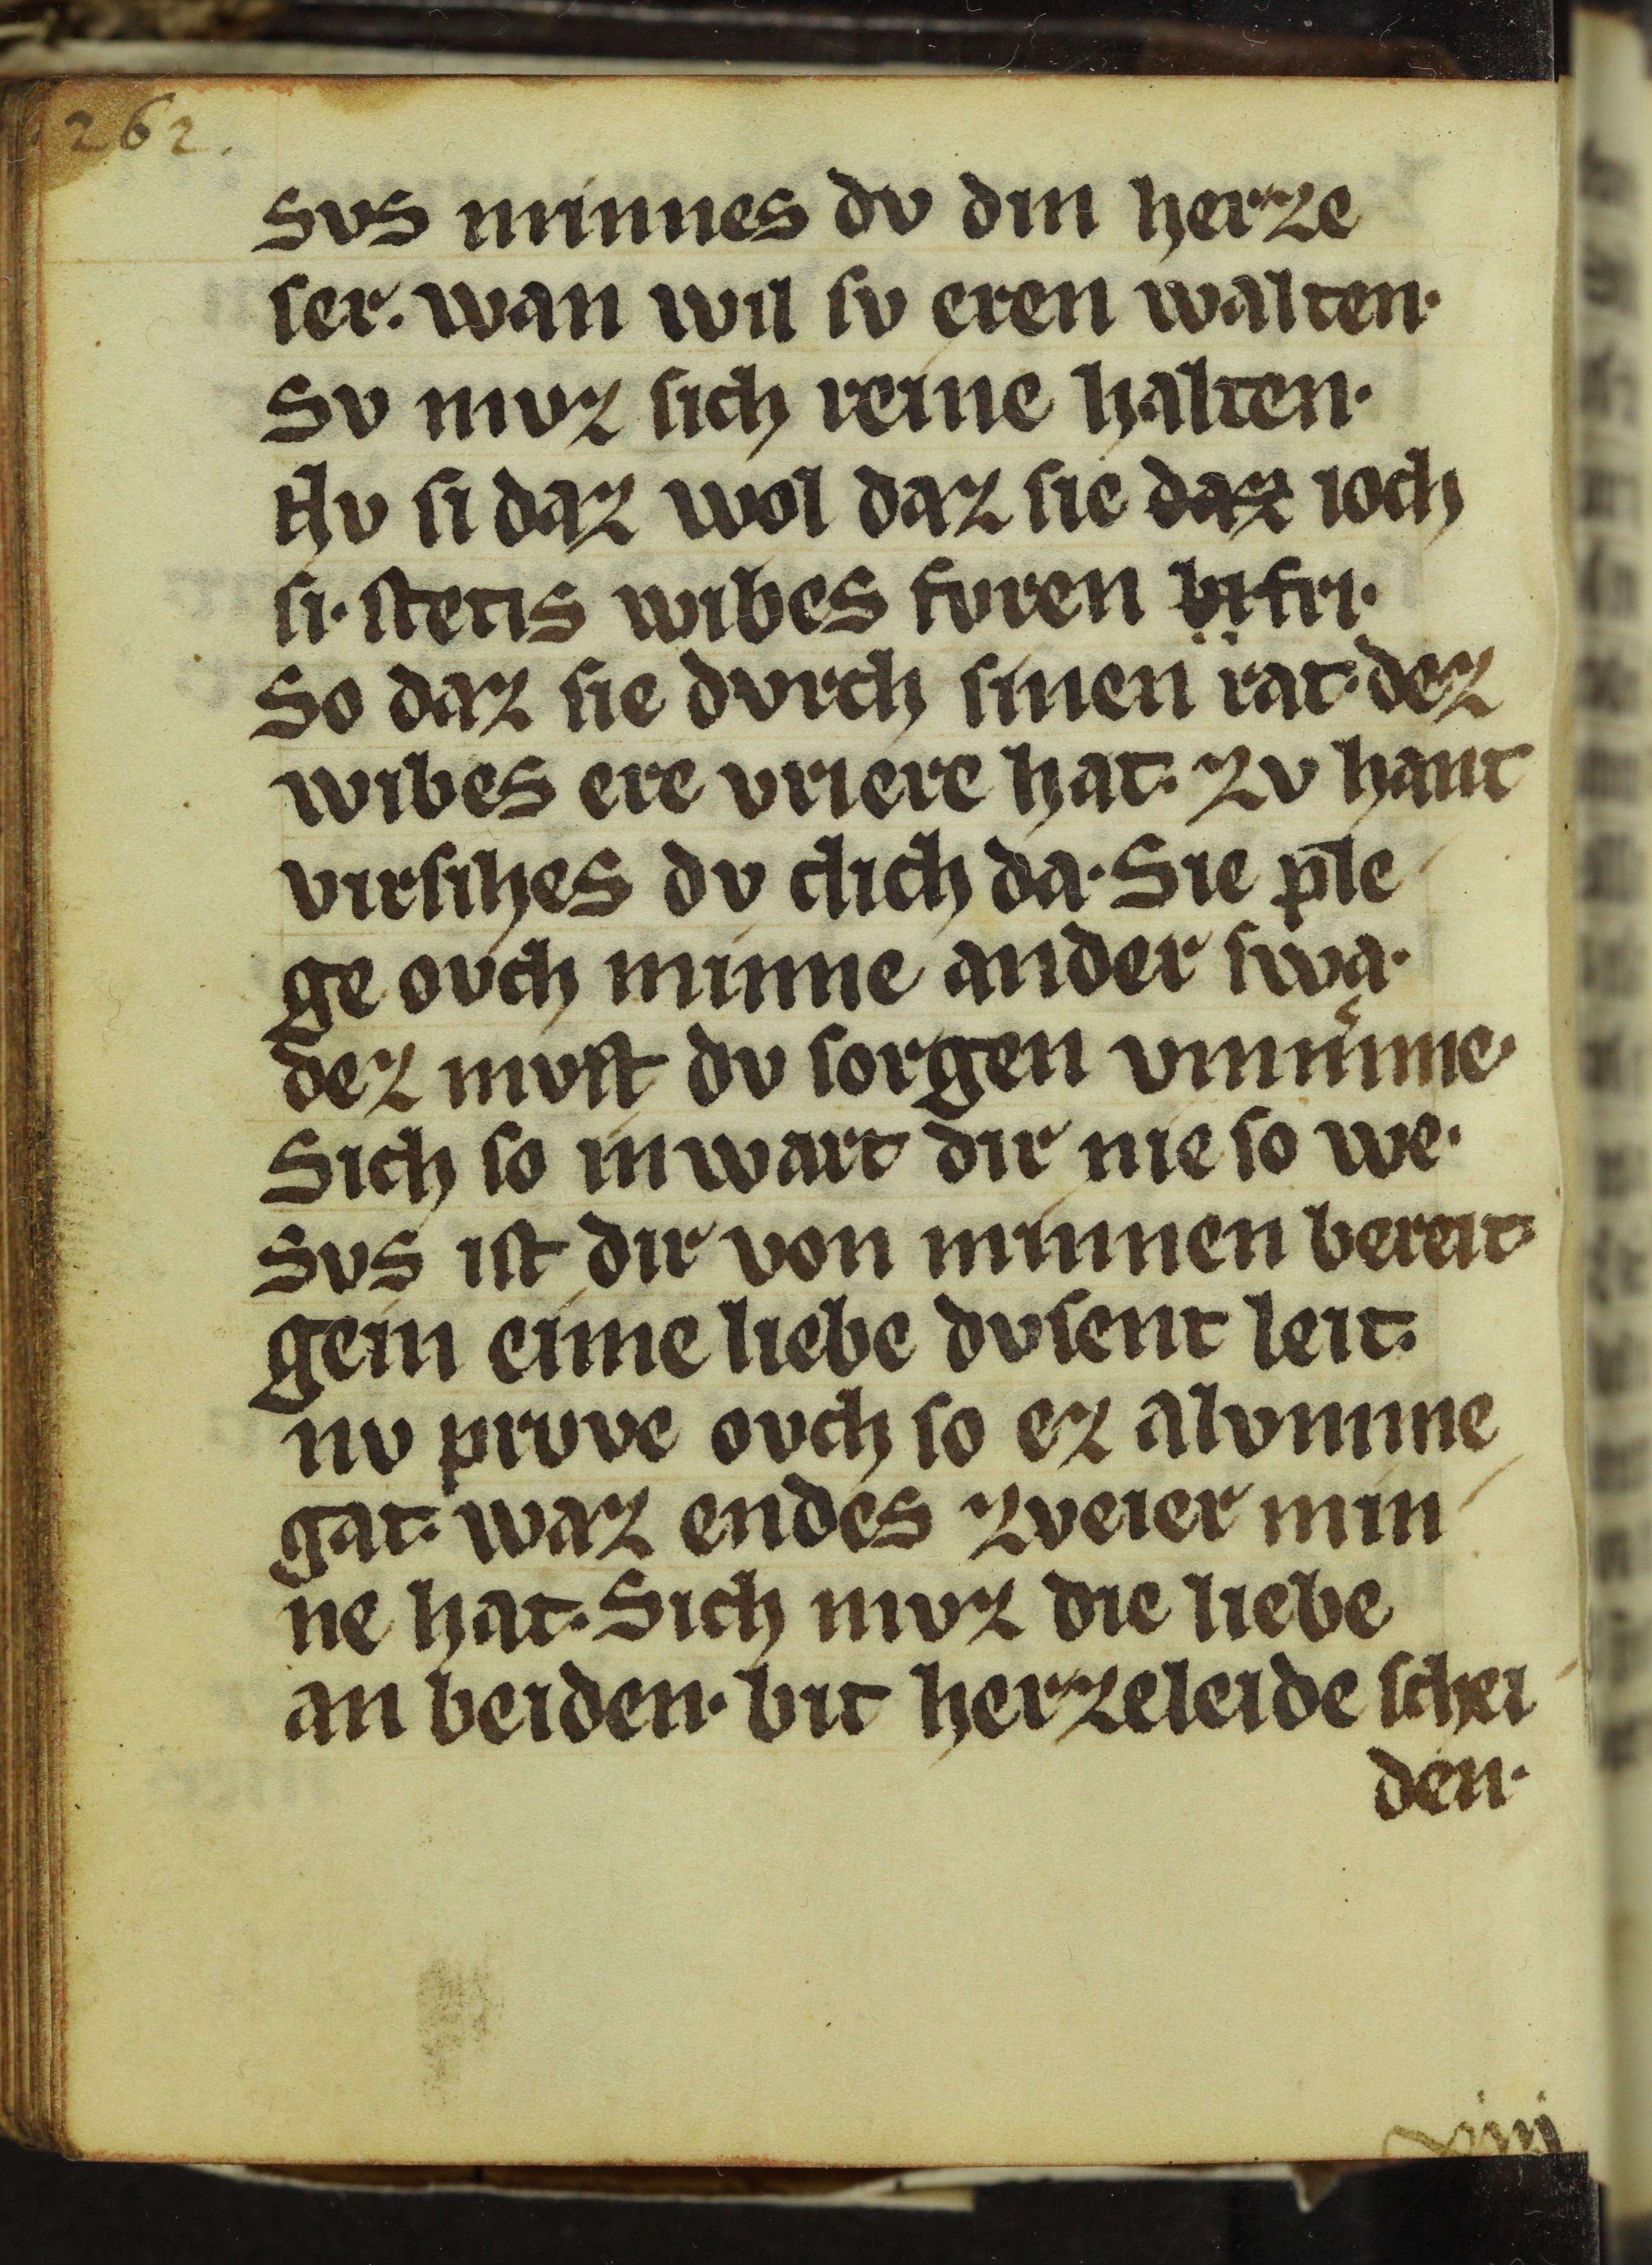 262.
svs minnes dv din herze
ser. wan wil sv eren walten·
Sv mvz sich reine halten·
Nv si daz wol daz sie daz ioch
si· stetis wibes fvren bi fri·
So daz sie dvrch sinen rat· dez
wibes ere vriere hat· zv hant
virsihes dv dich da· Sie ple
ge ovch minne ander swa·
dez mvst dv sorgen vmmͤme·
Sich so inwart dir nie so we·
Svs ist dir von minnen bereit·
gein eime liebe dvsent leit·
nv prvve ovch so ez alvmme
gat· waz endes zveier min
ne hat· Sich mvz die liebe
an beiden· bit herzeleide schei
den·